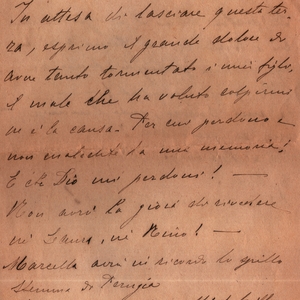 In attesa di lasciare questa ter-
ra, esprimo il grande dolore di
aver tanto tormentato i miei figli,
il male che ha voluto colpirmi
ne è la causa. Per cui perdono e
non maledite la mia memoria!
E che Dio mi perdoni! —
Non avrò la gioia di rivedere
nè Laura, nè Nino! —
Marcella avrà in ricordo lo spillo
Stemma di Perugia